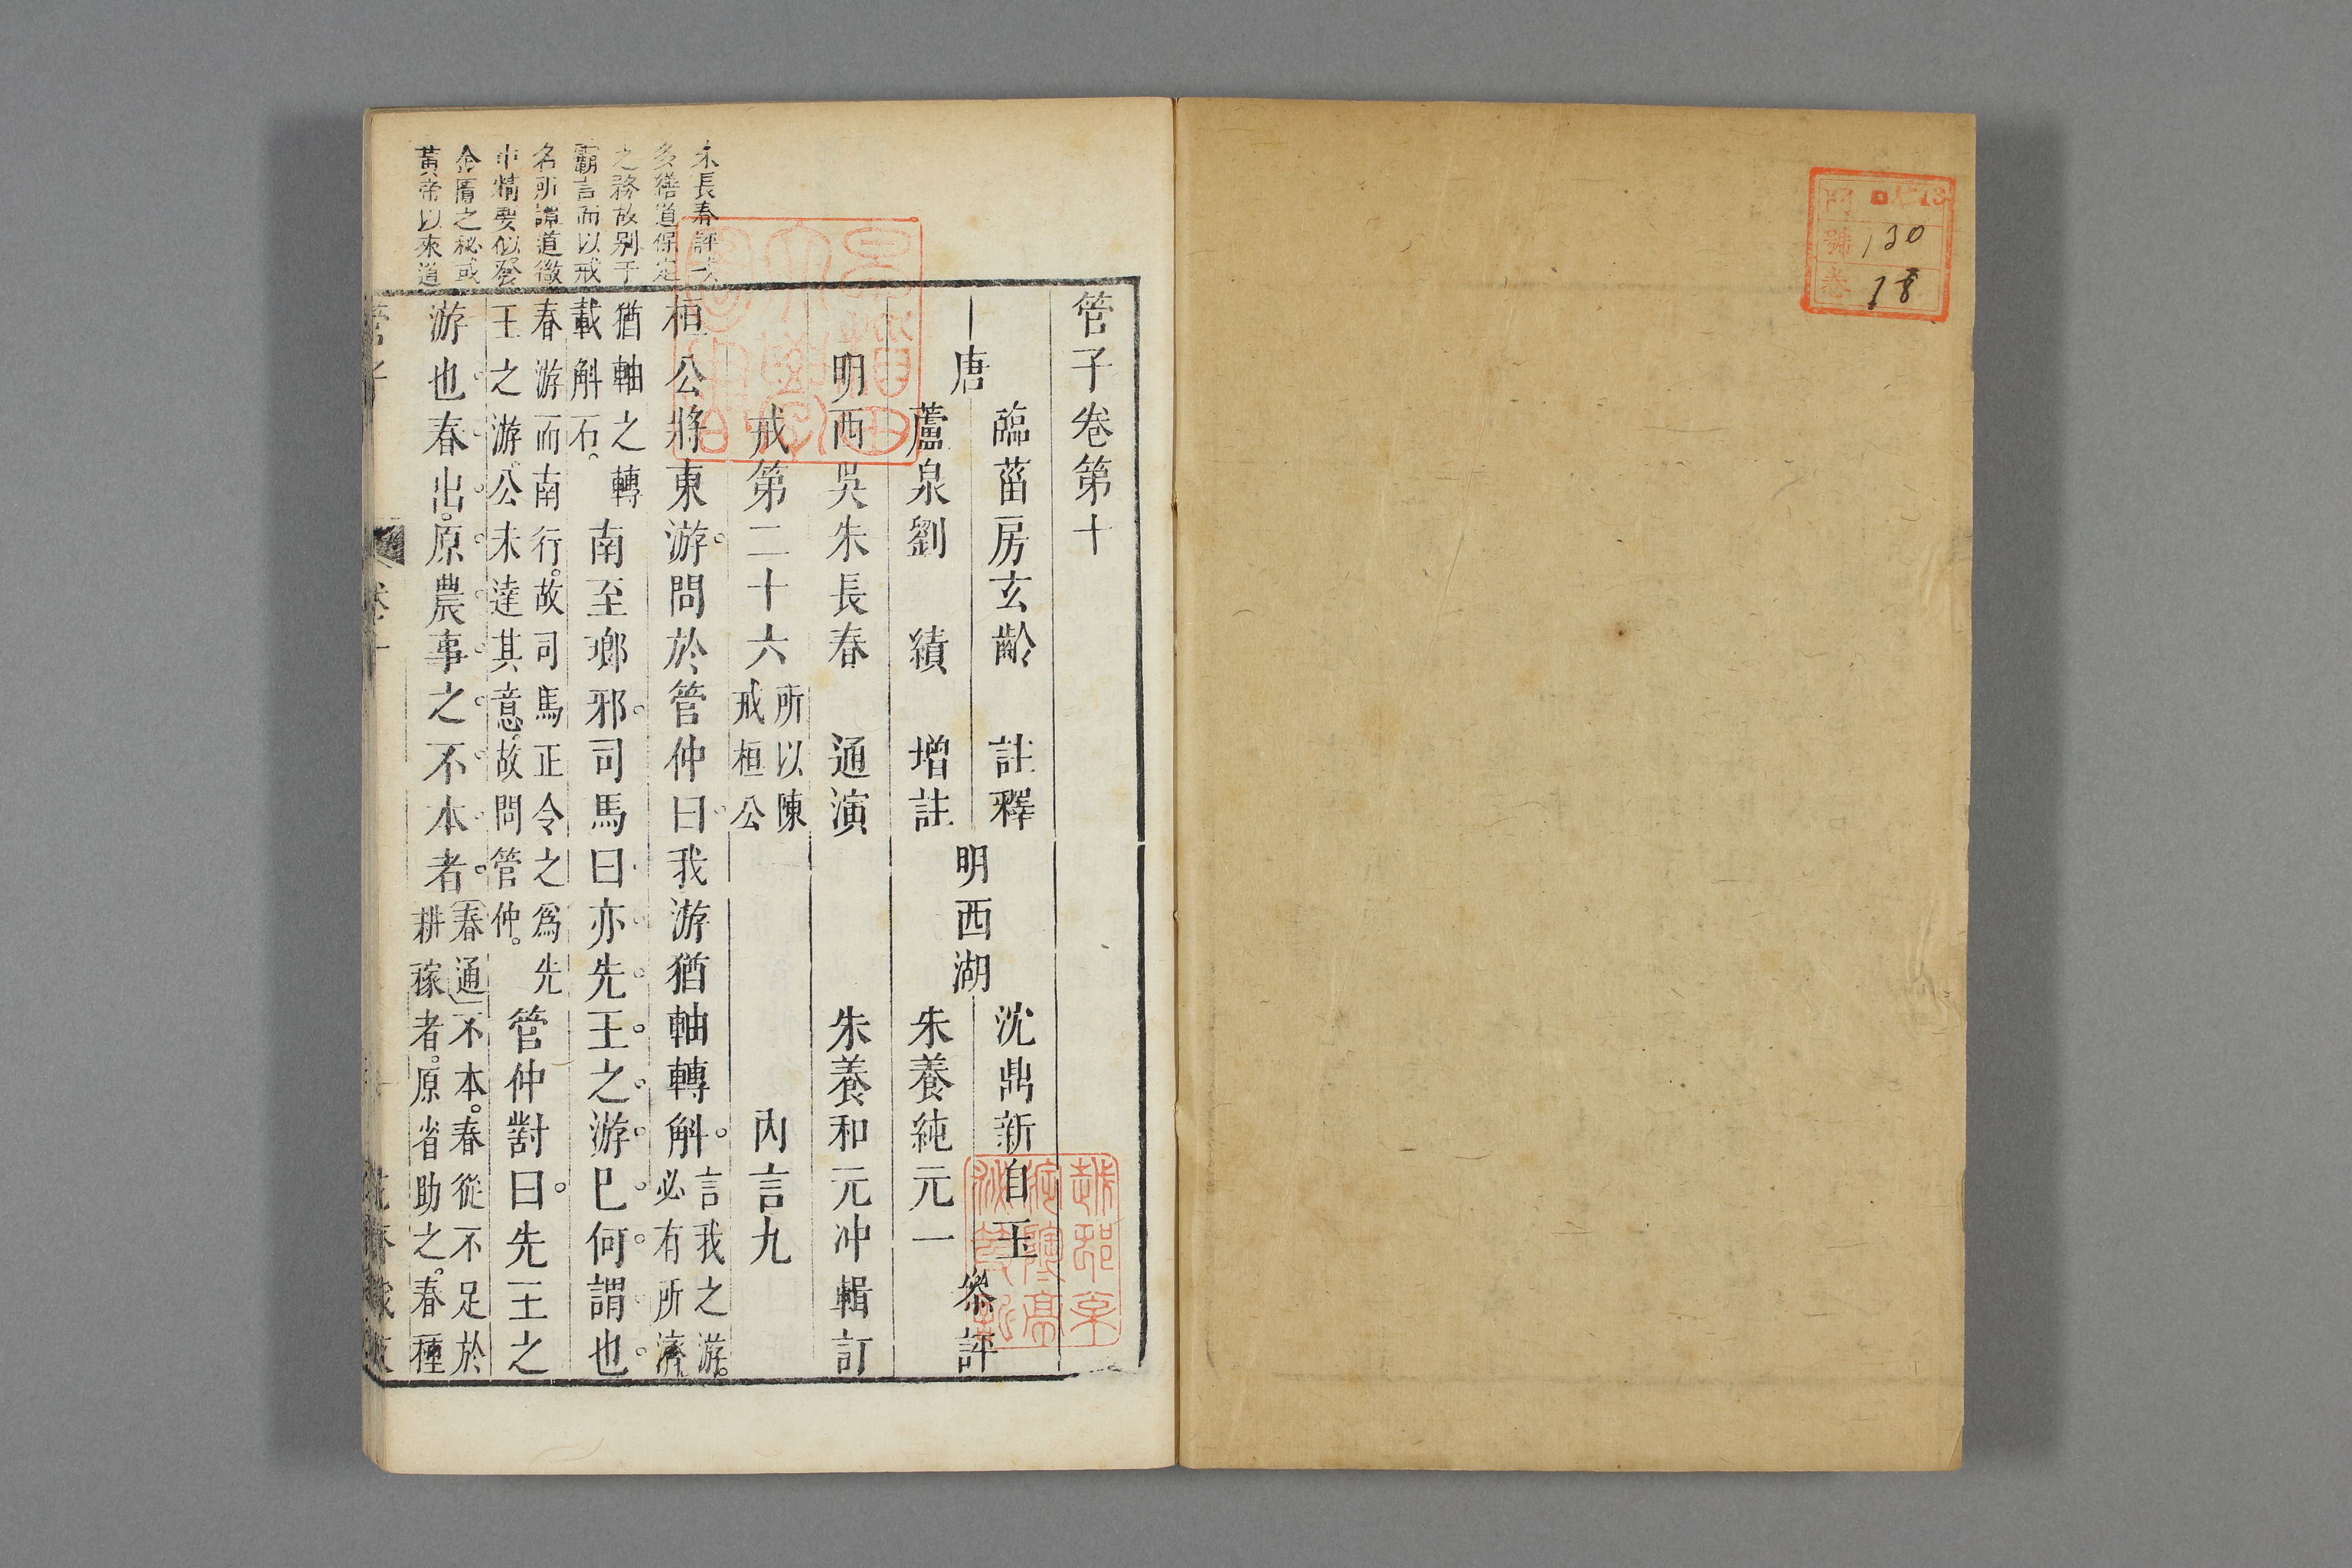 130
18
管子卷第十
唐
臨菑房玄齡 註釋
蘆泉劉 績 增註
明西湖
沈鼎新自玉
朱養純元一
參評
明西吳朱長春 通演
朱養和元冲輯訂
戒第二十六
所以陳
戒桓公
內言九
桓公將東游問於管仲曰我游猶軸轉斛
言我之游
必有所濟
猶軸之轉
載斛石
南至瑯邪司馬曰亦先王之游巳何謂也
春游而南行故司馬正令之爲先
王之游公未達其意故問管仲
管仲對曰先王之
游也春出原農事之不本者
春通不本春從不足於
耕稼者原省助之春種
朱長春評
多繕道保定
之務故别于
霸言而以戒
名所譚道微
中精要似發
金匱之秘或
黃帝以來道